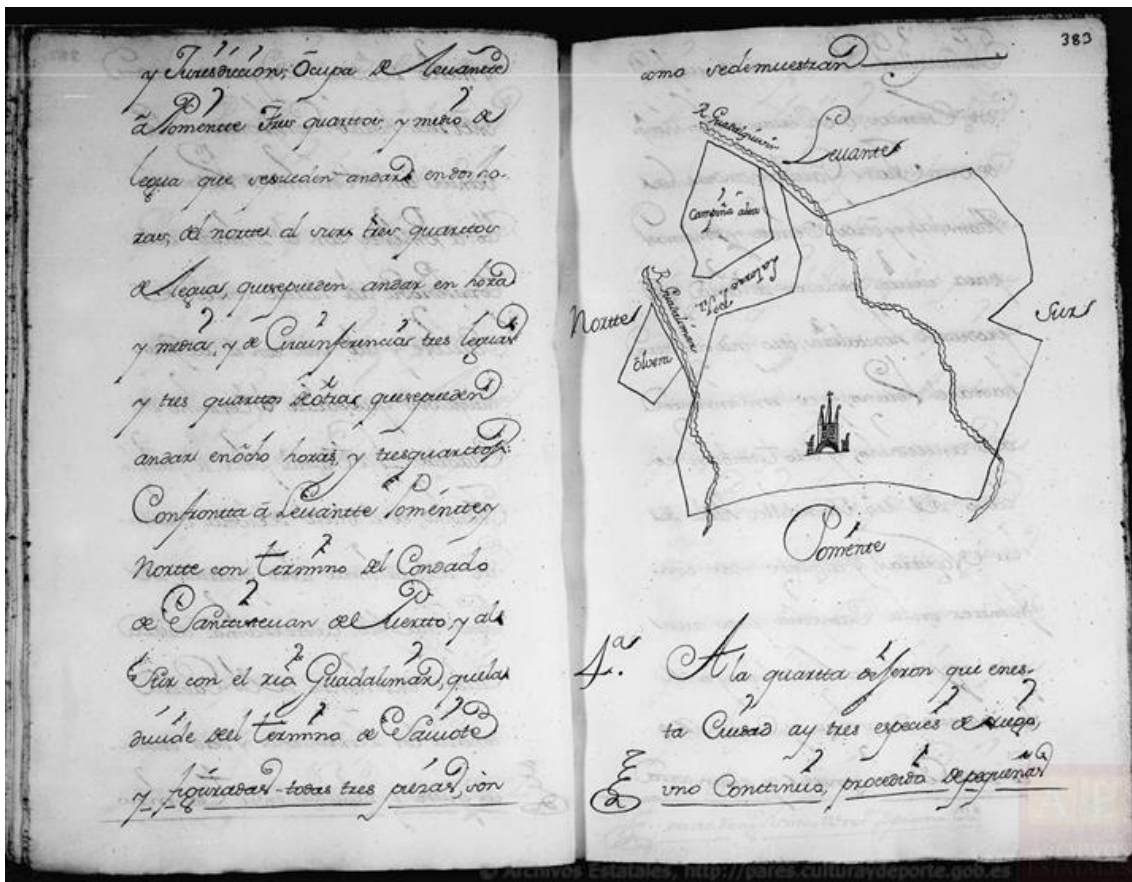 y Jurisdiccion; Ocupa de Levantte
â Ponientte Tres quarttos y medio de
legua que sepueden andar endos ho-
ras, del nortte al sur tres quarttos
de legua, quesepueden andar en hora
y media, y de Circunferencia tres leguas
y tres quarttos de otra, quesepueden
andar enôcho horas, y tresquarttos:
Confrontta â Levantte Ponientte y
Nortte con Termino del Condado
de Santistevan del Puertto, y al
Sur con el rio Guadalimar, que la
divide del Termino de Saviote
y figuradas todas tres piezas, son
383
como sedemuestran
R. Guadalquivir
Levante
Campiña alta
R. Guadalimar
Nortte
Sur
ôlvera
Ponientte
4ª.
A la quartta dijeron que enes-
ta Ciudad ay tres especies de riego,
uno Conttinuo, procedido de pequeñas
© Archivos Estatales, http://pares.culturaydeporte.gob.es
ARCHIVOS
ESTATALES